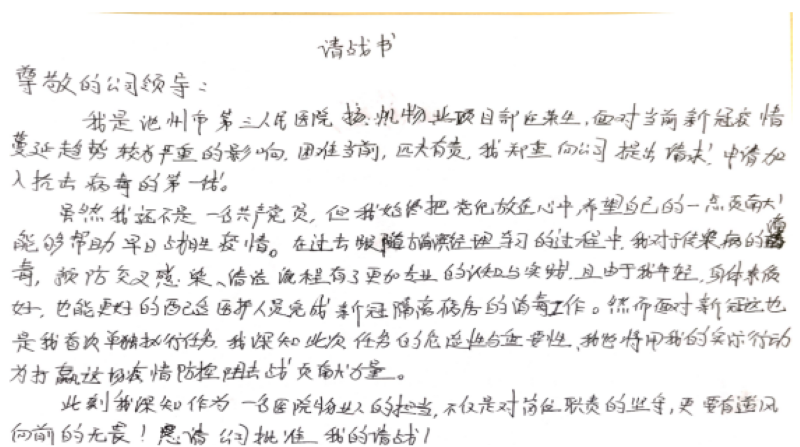 请战书
尊敬的公司领导：
我是池州市第三人民医院 物业项目部 ，面对当前新冠疫情
蔓延趋势较为严重的影响，困难当前，匹夫有责，我 向公司提出请求！申请加
入抗击病毒的第一线。
虽然我还不是一名共产党员，但我始终把党纪放在心中，希望自己的一点贡献
能够帮助早日战胜疫情。在过去跟随 经理学习的过程中，我对于传染病的消
毒，预防交叉感染、 流程有了更加专业的认知与实践，且由于我年轻，身体素质
好，也能更好的配合医护人员完成新冠隔离病房的消毒工作。然而面对新冠这也
是我首次单独执行任务，我深知此次任务的危险性与重要性，我必将用我的实际行动
为打赢这场疫情防控阻击战贡献力量。
此刻我深知作为一名医院物业人的担当，不仅是对岗位职责的坚守，更要有逆风
向前的无畏！恳请公司批准我的请战！